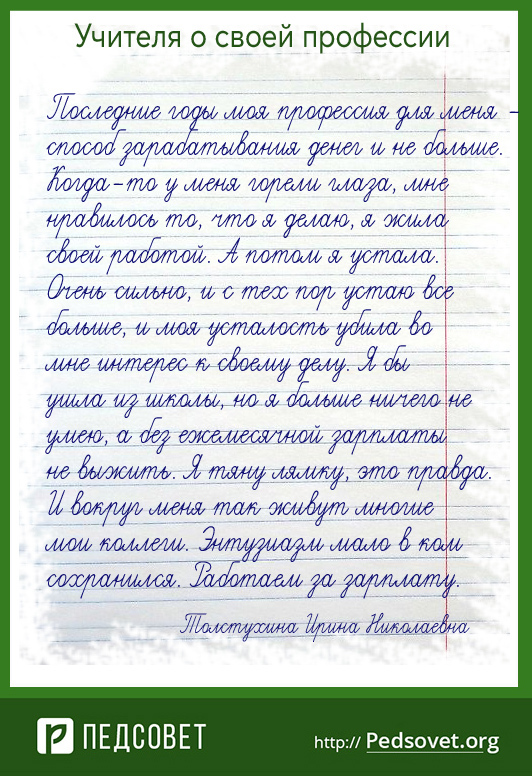 Учителя о своей профессии
Последние годы моя профессия для меня -
способ зарабатывания денег и не больше.
Когда-то у меня горели глаза, мне
нравилось то, что я делаю, я жила
своей работой. А потом я устала.
Очень сильно, и с тех пор устаю все
больше, и моя усталость убила во
мне интерес к своему делу. Я бы
ушла из школы, но я больше ничего не
умею, а без ежемесячной зарплаты
не выжить. Я тяну лямку, это правда.
И вокруг меня так живут многие
мои коллеги. Энтузиазм мало в ком
сохранился. Работаем за зарплату.
Толстухина Ирина Николаевна
ПЕДСОВЕТ
http:// Pedsovet.org